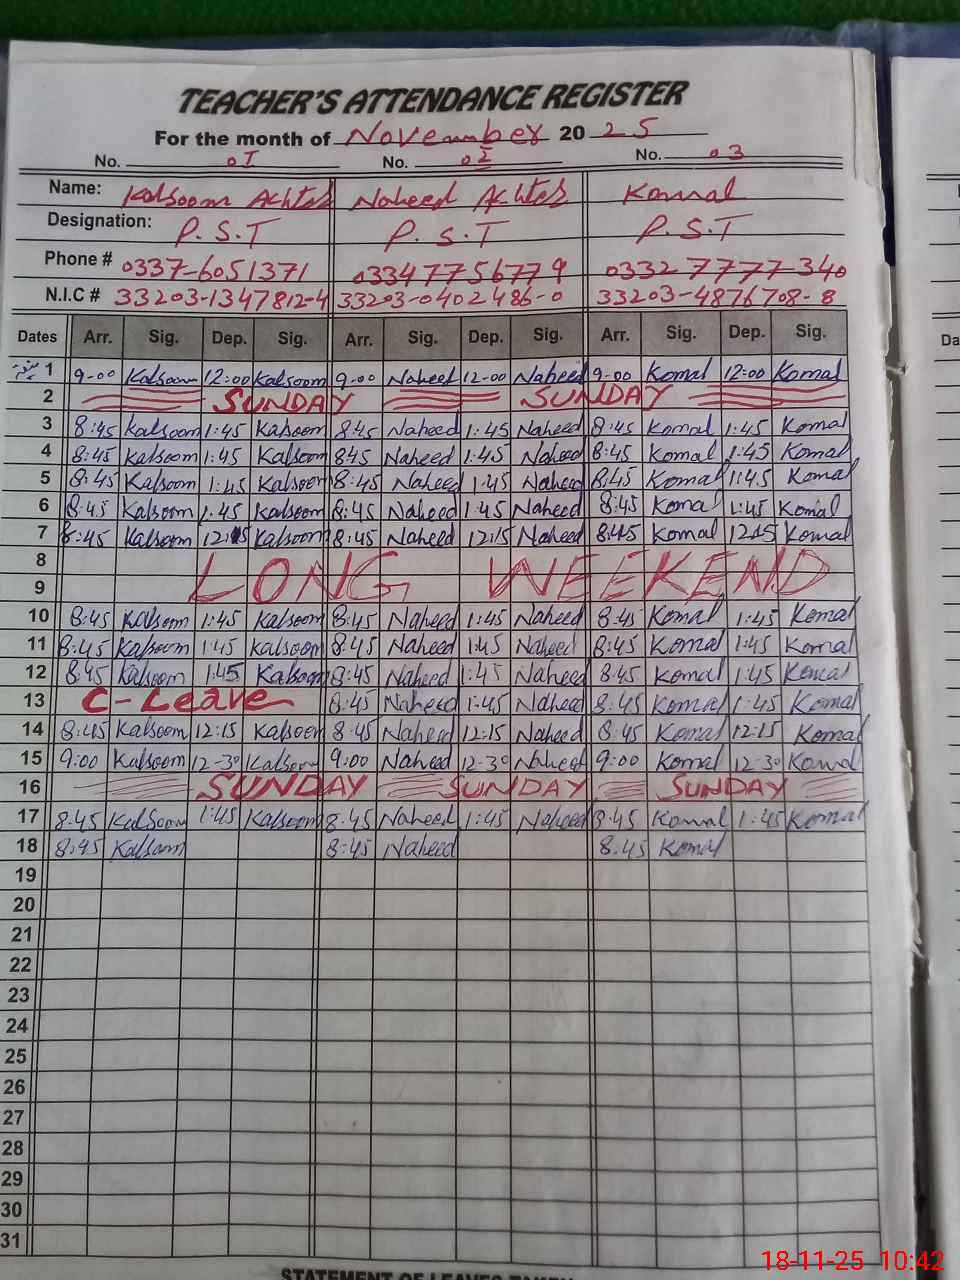 TEACHER'S ATTENDANCE REGISTER
For the month of November 20 25
No. 01 No. 02 No. 03
Name: Kalsoom Akhter Naheed Akhter Komal
Designation: P.S.T P.S.T P.S.T
Phone # 0337-6051371 03347756779 03327777340
N.I.C # 33203-1347812-4 33203-0402486-0 33203-4876708-8
Dates Arr. Sig. Dep. Sig. Arr. Sig. Dep. Sig. Arr. Sig. Dep. Sig.
1 9-00 Kalsoom 12:00 Kalsoom 9-00 Naheed 12-00 Naheed 9-00 Komal 12:00 Komal
2 SUNDAY SUNDAY
3 8:45 Kalsoom 1:45 Kalsoom 8:45 Naheed 1:45 Naheed 8:45 Komal 1:45 Komal
4 8:45 Kalsoom 1:45 Kalsoom 845 Naheed 1:45 Naheed 8:45 Komal 1:45 Komal
5 8:45 Kalsoom 1:45 Kalsoom 8:45 Naheed 1:45 Naheed 8:45 Komal 1:45 Komal
6 8:45 Kalsoom 1:45 Kalsoom 8:45 Naheed 1:45 Naheed 8:45 Komal 1:45 Komal
7 8:45 Kalsoom 12:15 Kalsoom 8:45 Naheed 12:15 Naheed 8:45 Komal 12:15 Komal
8 LONG WEEKEND
9
10 8:45 Kalsoom 1:45 Kalsoom 8:45 Naheed 1:45 Naheed 8:45 Komal 1:45 Komal
11 8:45 Kalsoom 1:45 Kalsoom 8:45 Naheed 1:45 Naheed 8:45 Komal 1:45 Komal
12 8:45 Kalsoom 1:45 Kalsoom 8:45 Naheed 1:45 Naheed 8:45 Komal 1:45 Komal
13 C-Leave 8:45 Naheed 1:45 Naheed 8:45 Komal 1:45 Komal
14 8:45 Kalsoom 12:15 Kalsoom 8:45 Naheed 12:15 Naheed 8:45 Komal 12:15 Komal
15 9:00 Kalsoom 12-30 Kalsoom 9:00 Naheed 12-30 Naheed 9:00 Komal 12-30 Komal
16 SUNDAY SUNDAY SUNDAY
17 8:45 Kalsoom 1:45 Kalsoom 8:45 Naheed 1:45 Naheed 8:45 Komal 1:45 Komal
18 8:45 Kalsoom 8:45 Naheed 8:45 Komal
19
20
21
22
23
24
25
26
27
28
29
30
31
STATEMENT OF LEAVES TAKEN
Da
18-11-25 10:42